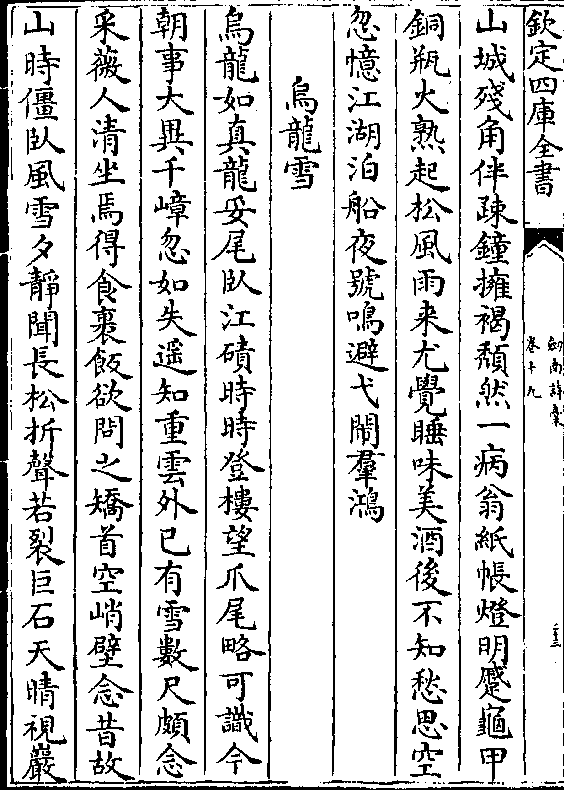 欽定四庫全書
劍南詩藁
卷十九
山城殘角伴疎鐘擁褐頽然一病翁紙帳燈明蹙龜甲
銅瓶火熟起松風雨来尤覺睡味美酒後不知愁思空
忽憶江湖泊船夜號鳴避弋閙羣鴻
烏龍雪
烏龍如真龍妥尾臥江磧時時登樓望爪尾略可識今
朝事大異千嶂忽如失遥知重雲外已有雪數尺頗念
采薇人清坐焉得食裹飯欲問之矯首空峭壁念昔故
山時僵臥風雪夕靜聞長松折聲若裂巨石天晴視巖